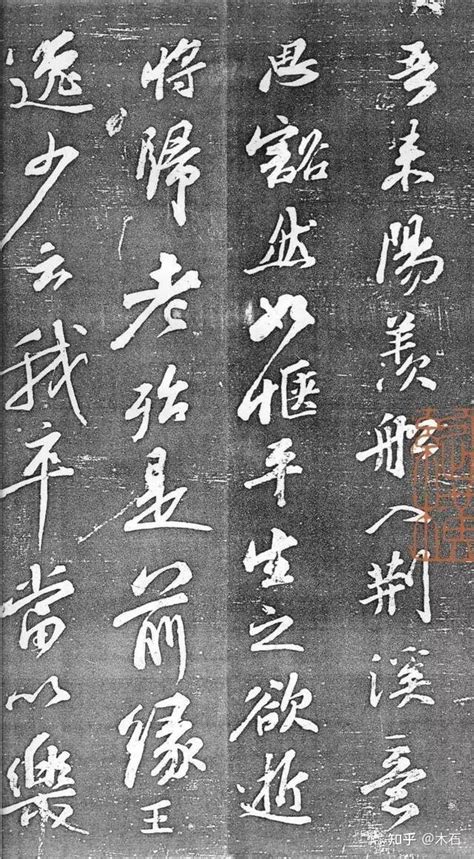 吾来陽羨船入荆溪意
思豁然如愜平生之欲逝
將歸老殆是前緣王
逸少云我卒當以樂
知乎 @木石